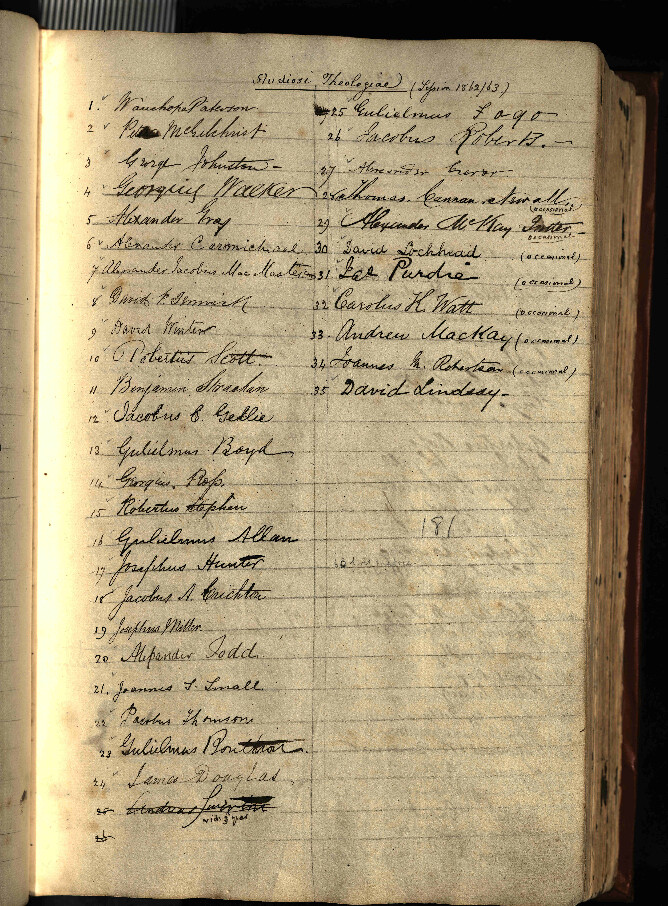 Studiosi Theologiae (Session 1862/63)
1. Wauchope Paterson
2 McGilchrist
3 George Johnston
4 Georgius Walker
5 Alexander Gray
6 Alexander Carmichael
7 Alexander Jacobus Mac Master
8 David F. Fenwick
9 David Winter
10 Robertus Scott
11 Benjamin
12 Jacobus C. Geddie
13 Gulielmus Boyd
14 Georgius Ross
15 Robertus Stephen
16 Gulielmus Allan
17 Josephus Hunter
18 Jacobus A. Crichton
19 Josephus Millar
20 Alexander Todd
21. Joannes S. Small
22 Jacobus Thomson
23 Gulielmus
24 James Douglas
25 Andreas
26
25 Gulielmus Fogo
26 Jacobus Roberts. —
27 Alexander
28 Thomas
(occasional)
29 Alexander McKay
occasional
30 David Lochhead (occasional)
31 Jas Purdie (occasional)
32 Carolus H. Watt (occasional)
33. Andrew MacKay (occasional)
34 Joannes M. Robertson (occasional)
35 David Lindsay
181